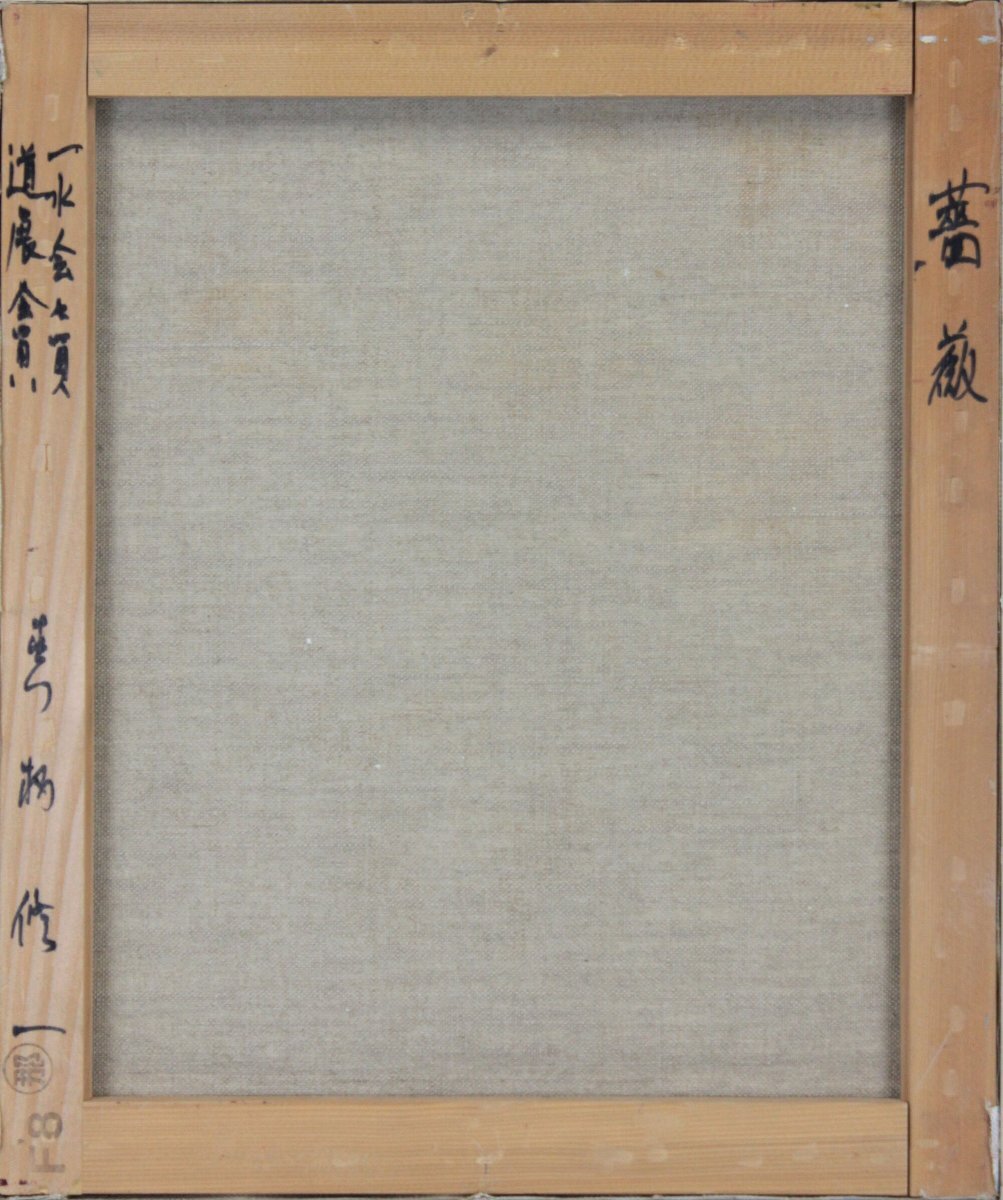 薔薇
一水会々員
道展会員
修一
F8